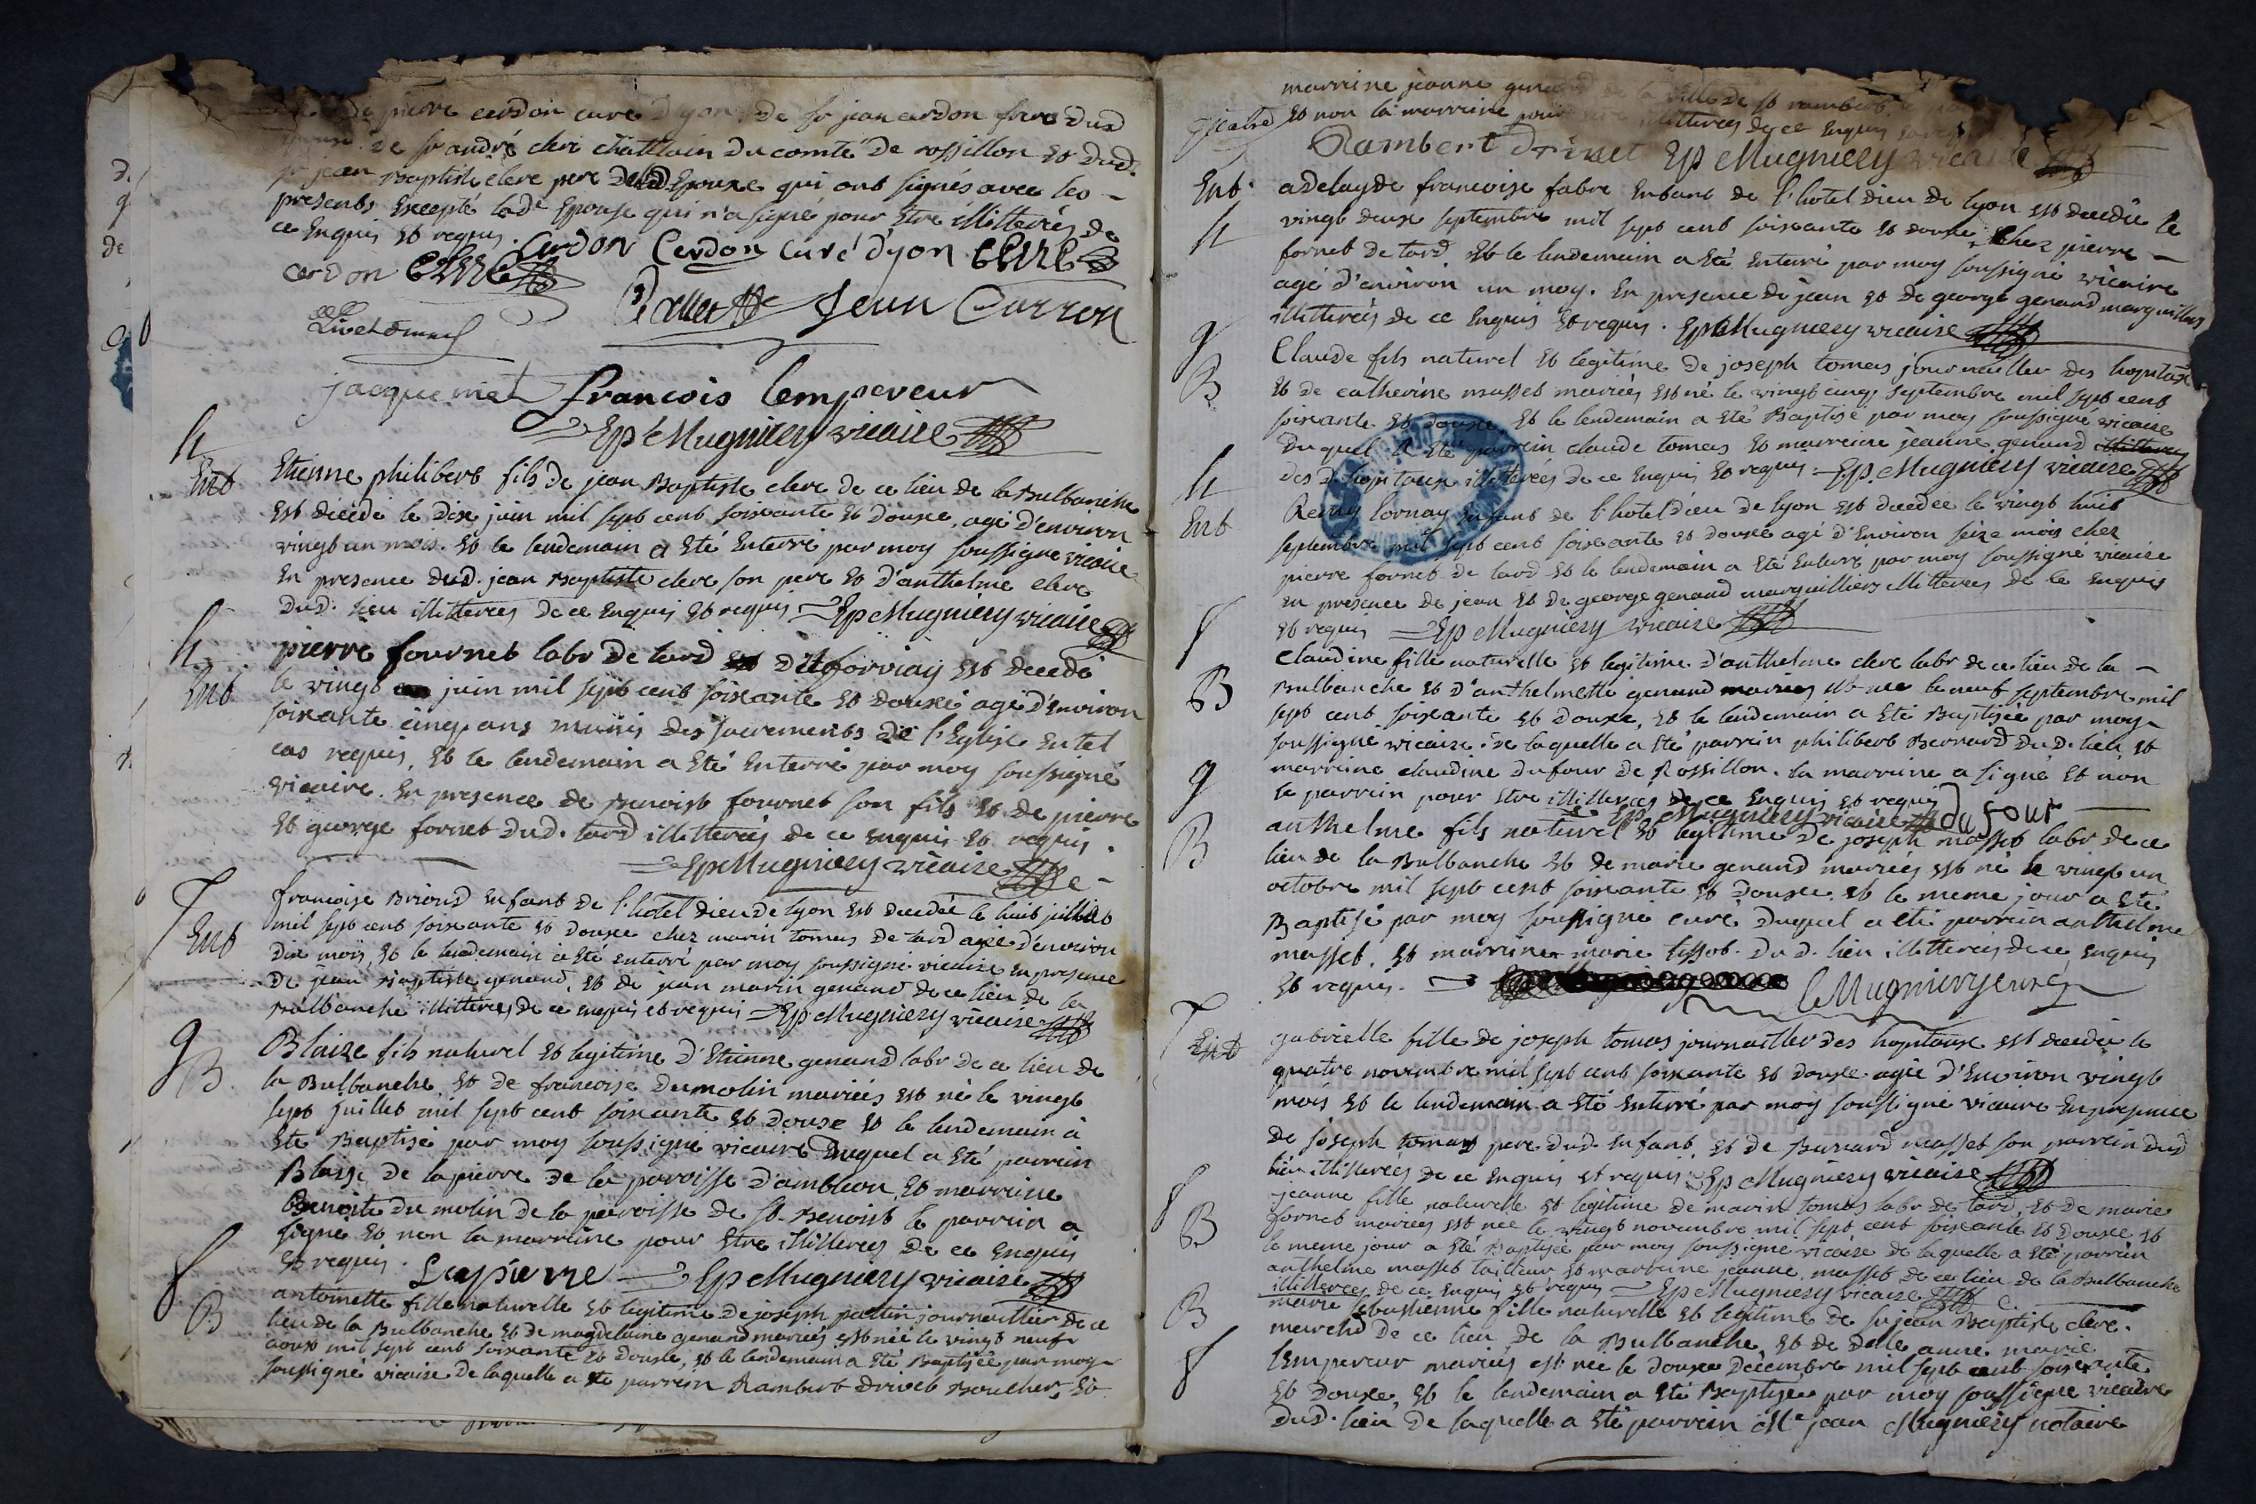 de pierre cerdon curé d'yon de sr jean cerdon frere dud
de sr andré clerc châtelain du comté de rossillon et dud.
sr jean Baptiste clerc pere de lad Epouse qui ont signés avec les
presents Excepté lade Epouse qui n'a signé pour être illitterés de
ce Enquis et requis.
Cerdon Cerdon Curé d'yon Clerc
cerdon Clerc
Jean Curron
jacquemet françois Lempereur
Ep Mugniery vicaire
h
Ent Etienne philibert fils de jean Baptiste clerc de ce lieu de la Bulbanche
est decedé le dix juin mil sept cent soixante et douze, agé d'environ
vingt un mois. et le lendemain a eté Enterré par moy soussigné vicaire
En presence dud. jean Baptiste clerc son pere et d'anthelme clerc
dud. lieu illitterées de ce Enquis et requis Ep Mugniery vicaire
h
pierre fournet labr de tard dit forviay est decedé
Ent le vingt juin mil sept cent soixante et douze agé d'Environ
soixante cinq ans munis des sacrements de l'Eglise En tel
cas requis, et le lendemain a eté Enterré par moy soussigné
vicaire. En presence de Benoist fournet son fils et de pierre
et george fornet dud. tard illitterées de ce Enquis et requis.
Ep Mugniery vicaire
francoise Briond Enfant de l'hotel dieu de lyon est decedée le huit juillet
Ent mil sept cent soixante et douze chez marin tomas de tard agée d'environ
dix mois, et le lendemain a eté enterré par moy soussigné vicaire En presence
de jean Baptiste genand, et de jean marin genand de ce lieu de la
Bulbanche illitterées de ce enquis et requis Ep Mugniery vicaire
g
B Blaize fils naturel et legitime d'Etienne genand labr de ce lieu de
la Bulbanche et de francoise dumolin mariés est né le vingt
sept juillet mil sept cent soixante et douze et le lendemain a
eté Baptisé par moy soussigné vicaire Duquel a eté parrein
Blaise de lapierre de la paroisse d'ambleon et marreine
Benoite du molin de la paroisse de st. Benoist le parrein a
signé et non la marreine pour être illitterées de ce Enquis
et requis. Lapierre Ep Mugniery vicaire
f
B antoinette fille naturelle et legitime de joseph pattin journaillier de ce
lieu de la Bulbanche et de magdelaine genand mariés est née le vingt neuf
aoust mil sept cent soixante et douze, et le lendemain a eté Baptisée par moy
soussigné vicaire de laquelle a eté parrein Rambert drivet Boucher, et
marreine jeanne genand de la ville de st rambert
et non la marreine pour illitterées de ce Enquis
Rambert Drivet Ep Mugniery vicaire
Ent. adelayde francoise fabre Enfant de l'hotel dieu de lyon est decedée le
h vingt deux septembre mil sept cent soixante et douze, chez pierre
fornet de tard. et le lendemain a eté Enterré par moy soussigné vicaire
agé d'environ un moy. En presence de jean et de george genand marguilliers
illitterées de ce Enquis et requis. Ep Mugniery vicaire
g
B Claude fils naturel et legitime de joseph tomas journaillier des hopitaux
et de catherine masset mariés est né le vingt cinq septembre mil sept cent
soixante et douze et le lendemain a eté Baptisé par moy soussigné vicaire
Duquel a eté parrein claude tomas et marreine jeanne genand
des d. hopitaux illitterées de ce Enquis et requis Ep. Mugniery vicaire
h
Ent Remy lornay Enfant de l'hotel dieu de lyon est decedée le vingt huit
septembre mil sept cent soixante et douze agé d'Environ seize mois chez
pierre fornet de tard et le lendemain a eté Enterré par moy soussigné vicaire
En presence de jean et de george genand marguilliers illitterées de ce Enquis
et requis Ep Mugniery vicaire
f
B Claudine fille naturelle et legitime d'anthelme clerc labr de ce lieu de la
Bulbanche et d'anthelmette genand mariés est née le neuf septembre mil
sept cent soixante et douze, et le lendemain a eté Baptisée par moy
soussigné vicaire. de laquelle a eté parrein philibert Bernard dud. lieu et
marreine claudine dufour de Rossillon. la marreine a signé et non
le parrein pour être illitterées de ce Enquis et requis
Ep Mugniery vicaire dufour
g
B anthelme fils naturel et legitime de joseph masset labr de ce
lieu de la Bulbanche et de marie genand mariés est né le vingt un
octobre mil sept cent soixante et douze et le meme jour a eté
Baptisé par moy soussigné curé Duquel a eté parrein anthelme
masset. et marreine marie tissot. dud. lieu illitterées de ce Enquis
et requis. Mugniery curé
Ent gabrielle fille de joseph tomas journaillier des hopitaux est decedée le
quatre novembre mil sept cent soixante et douze agée d'Environ vingt
mois et le lendemain a eté enterré par moy soussigné vicaire En presence
de joseph tomas pere dud. Enfant, et de Bernard masset son parrein dud
lieu illitterées de ce Enquis et requis Ep Mugniery vicaire
f
B jeanne fille naturelle et legitime de marin tomas labr de tard, et de marie
fornet mariés est née le vingt novembre mil sept cent soixante et douze et
le meme jour a eté Baptisée par moy soussigné vicaire de laquelle a eté parrein
anthelme masset tailleur et marreine jeanne masset de ce lieu de la Bulbanche
illitterées de ce Enquis et requis Ep Mugniery vicaire
B marie sebastienne fille naturelle et legitime de sr jean Baptiste clerc
marchd de ce lieu de la Bulbanche, et de delle anne marie
f Lempereur mariés est née le douze decembre mil sept cent soixante
et douze, et le lendemain a eté Baptisée par moy soussigné vicaire
dud. lieu de laquelle a eté parrein me jean Mugniery notaire